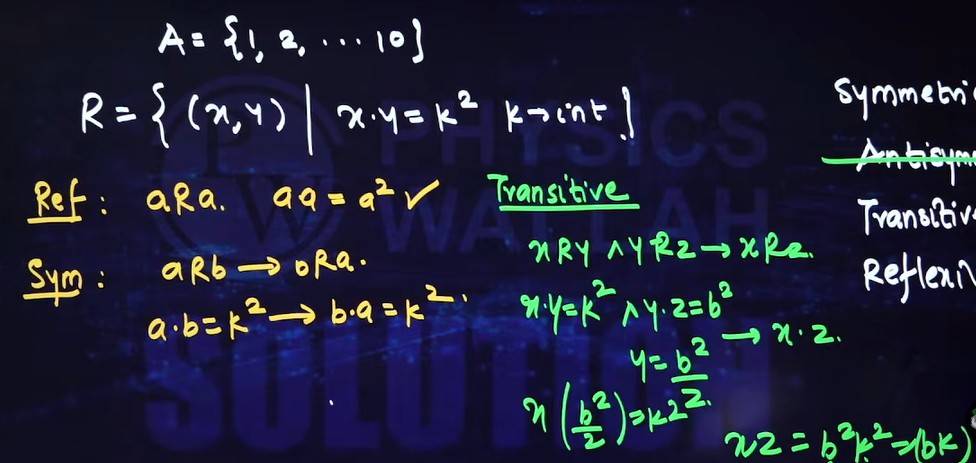 A = {1, 2, ... 10}
R = { (x, y) | x·y = k² k → int }
Ref : aRa. aa = a² ✓
Sym : aRb → bRa.
a·b = k² → b·a = k².
Transitive
xRy ∧ yRz → xRz.
x·y = k² ∧ y·z = b²
→ x·z.
y = b²/z
x (b²/z) = k² z.
xz = b²k² = (bk)
Symmetri
Antisymm
Transitiv
Reflexi
PHYSICS
WALLAH
SOLUTION